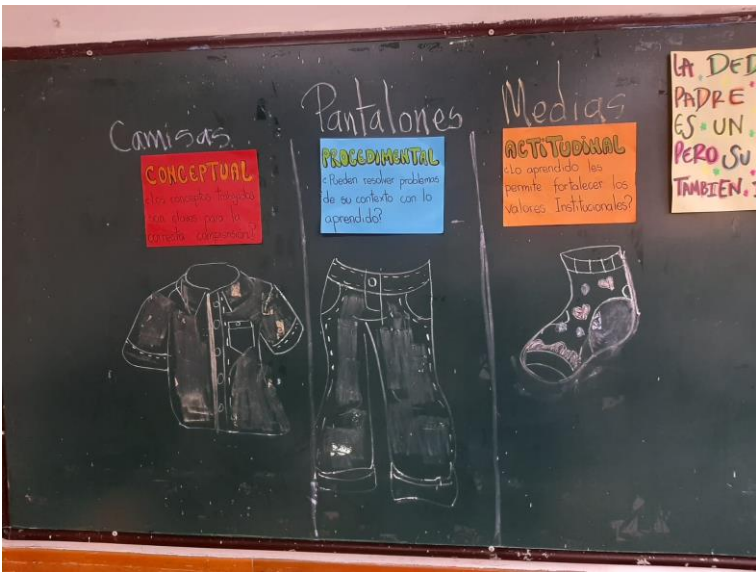 Camisas
CONCEPTUAL
¿Los conceptos trabajados
son claves para la
correcta comprensión?
Pantalones
PROCEDIMENTAL
¿Pueden resolver problemas
de su contexto con lo
aprendido?
Medias
ACTITUDINAL
¿Lo aprendido les
permite fortalecer los
valores Institucionales?
LA DED
PADRE
ES UN
PERO SU
TAMBIEN.